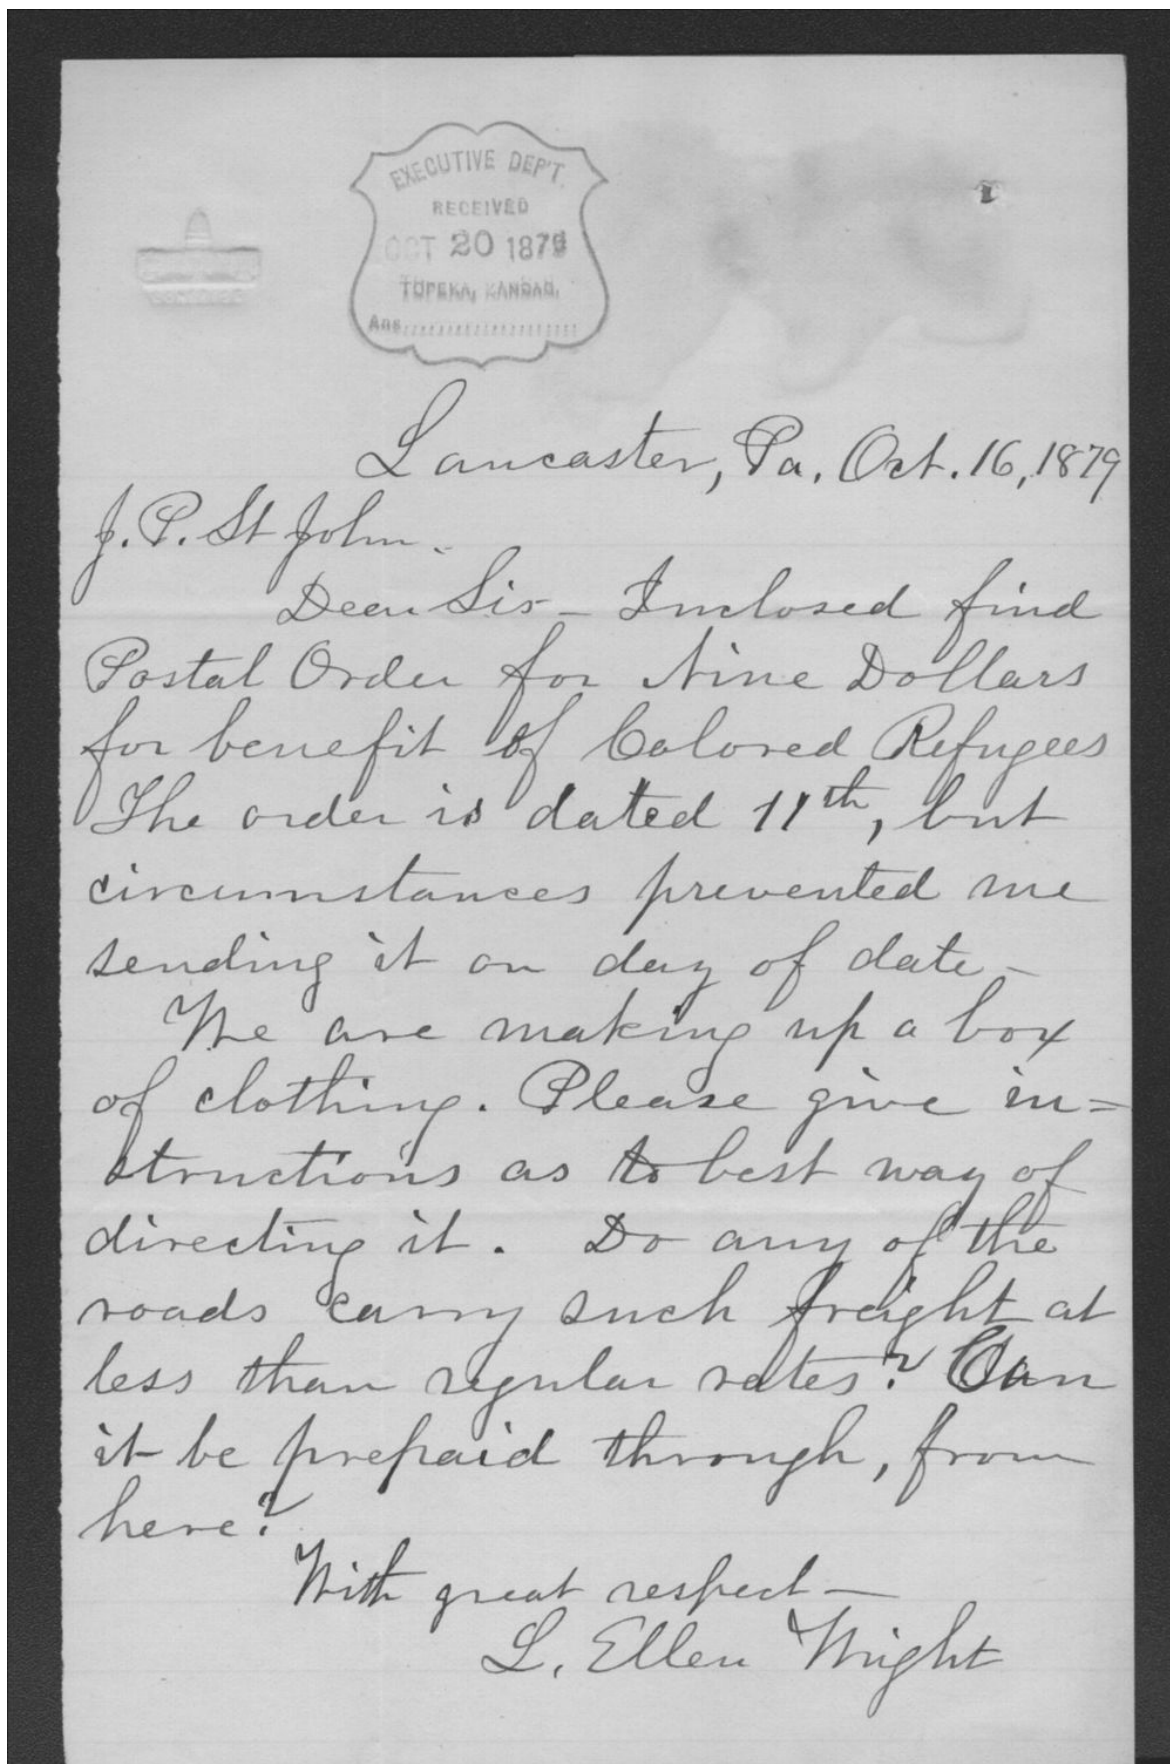 EXECUTIVE DEP'T.
RECEIVED
OCT 20 1879
TOPEKA, KANSAS.
Ans.....................
Lancaster, Pa. Oct. 16, 1879
J. P. St John.
Dear Sir - Inclosed find
Postal Order for Nine Dollars
for benefit of Colored Refugees
The order is dated 11th, but
circumstances prevented me
sending it on day of date -
We are making up a box
of clothing. Please give in=
structions as to best way of
directing it. Do any of the
roads carry such freight at
less than regular rates? Can
it be prepaid through, from
here?
With great respect -
L. Ellen Wright